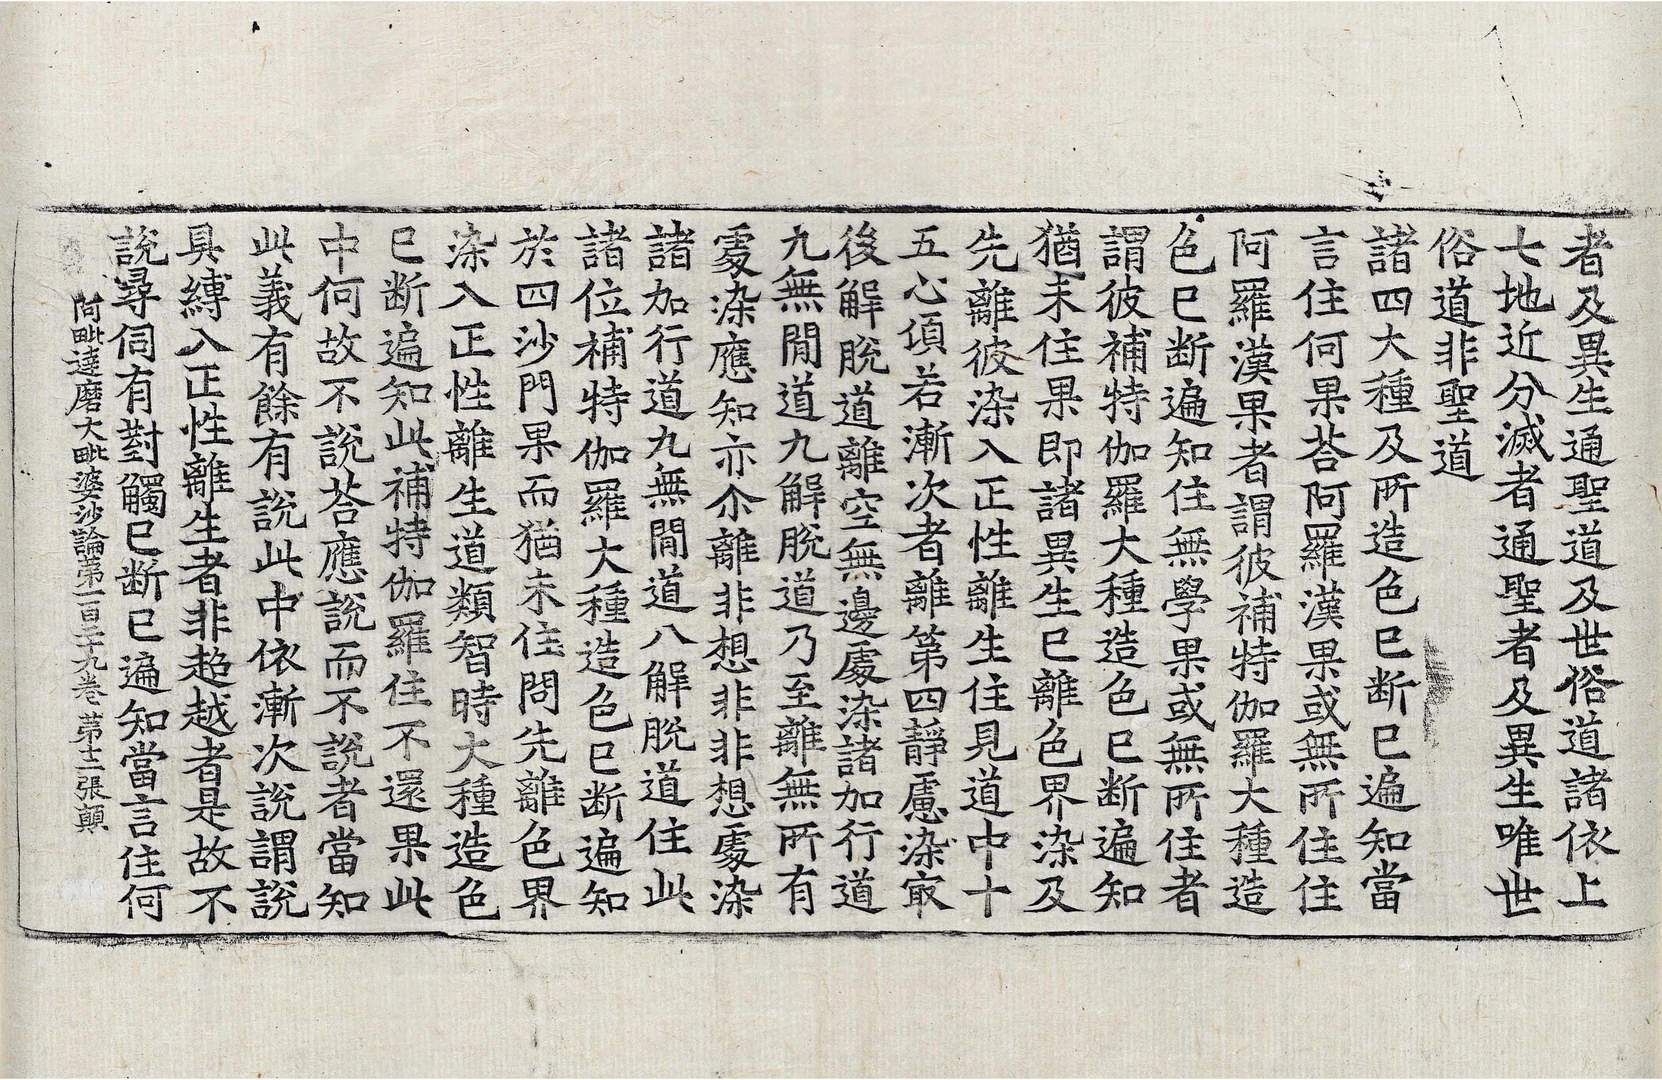 者及異生通聖道及世俗道諸依上
七地近分滅者通聖者及異生唯世
俗道非聖道
諸四大種及所造色已断已遍知當
言住何果荅阿羅漢果或無所住住
阿羅漢果者謂彼補特伽羅大種造
色已断遍知住無學果或無所住者
謂彼補特伽羅大種造色已断遍知
猶未住果即諸異生已離色界染及
先離彼染入正性離生住見道中十
五心頃若漸次者離第四靜慮染㝡
後解脫道離空無邊處染諸加行道
九無間道九解脫道乃至離無所有
處染應知亦尒離非想非非想處染
諸加行道九無間道八解脫道住此
諸位補特伽羅大種造色已断遍知
於四沙門果而猶未住問先離色界
染入正性離生道類智時大種造色
已断遍知此補特伽羅住不還果此
中何故不說荅應說而不說者當知
此義有餘有說此中依漸次說謂說
具縛入正性離生者非超越者是故不
說尋伺有對觸已断已遍知當言住何
阿毗達磨大毗婆沙論第一百三十九卷 第十二張 顛